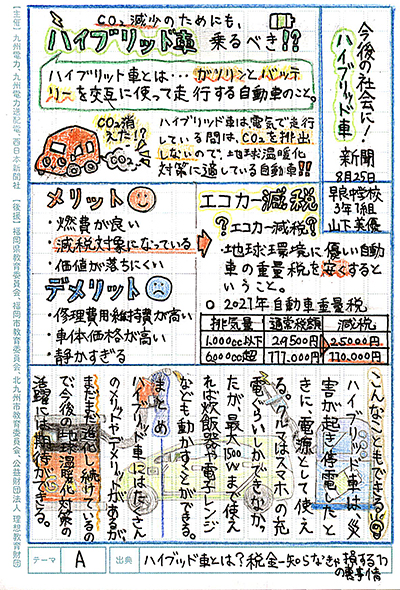 今後の社会に!
ハイブリッド車
新聞
8月25日
早良中学校
3年1組
山下英優
CO₂減少のためにも、
ハイブリッド車 乗るべき!?
ハイブリット車とは…ガソリンとバッテ
リーを交互に使って走行する自動車のこと。
CO₂消
えた!?
CO₂
ハイブリッド車は電気で走行
している間は、CO₂を排出
しないので、地球温暖化
対策に適している自動車!!
メリット
・燃費が良い
・減税対象になっている
・価値が落ちにくい
デメリット
・修理費用・維持費が高い
・車体価格が高い
・静かすぎる
エコカー減税
?エコカー減税?
地球環境に優しい自動
車の重量税を安くすると
いうこと。
○ 2021年自動車重量税
排気量 通常税額 減税
1,000cc以下 29,500円 25,000円
6,000cc超 111,000円 110,000円
こんなこともできる!
ハイブリッド車は、災
害が起き停電したと
きに電源として使え
る。クルマはスマホの充
電ぐらいしかできなか
たが、最大1500Wまで使え
れば炊飯器や電子レンジ
なども動かすことができる。
まとめ
ハイブリッド車にはたくさん
のメリットやデメリットがあるが
まだまだ進化し続けているの
で今後の地球温暖化対策の
活躍には期待ができる。
テーマ A 出典 ハイブッド車とは?税金-知らなきゃ損する
の裏事情
【主催】九州電力、九州電力送配電、西日本新聞社 【後援】福岡県教育委員会、福岡市教育委員会、北九州市教育委員会、公益財団法人 理想教育財団